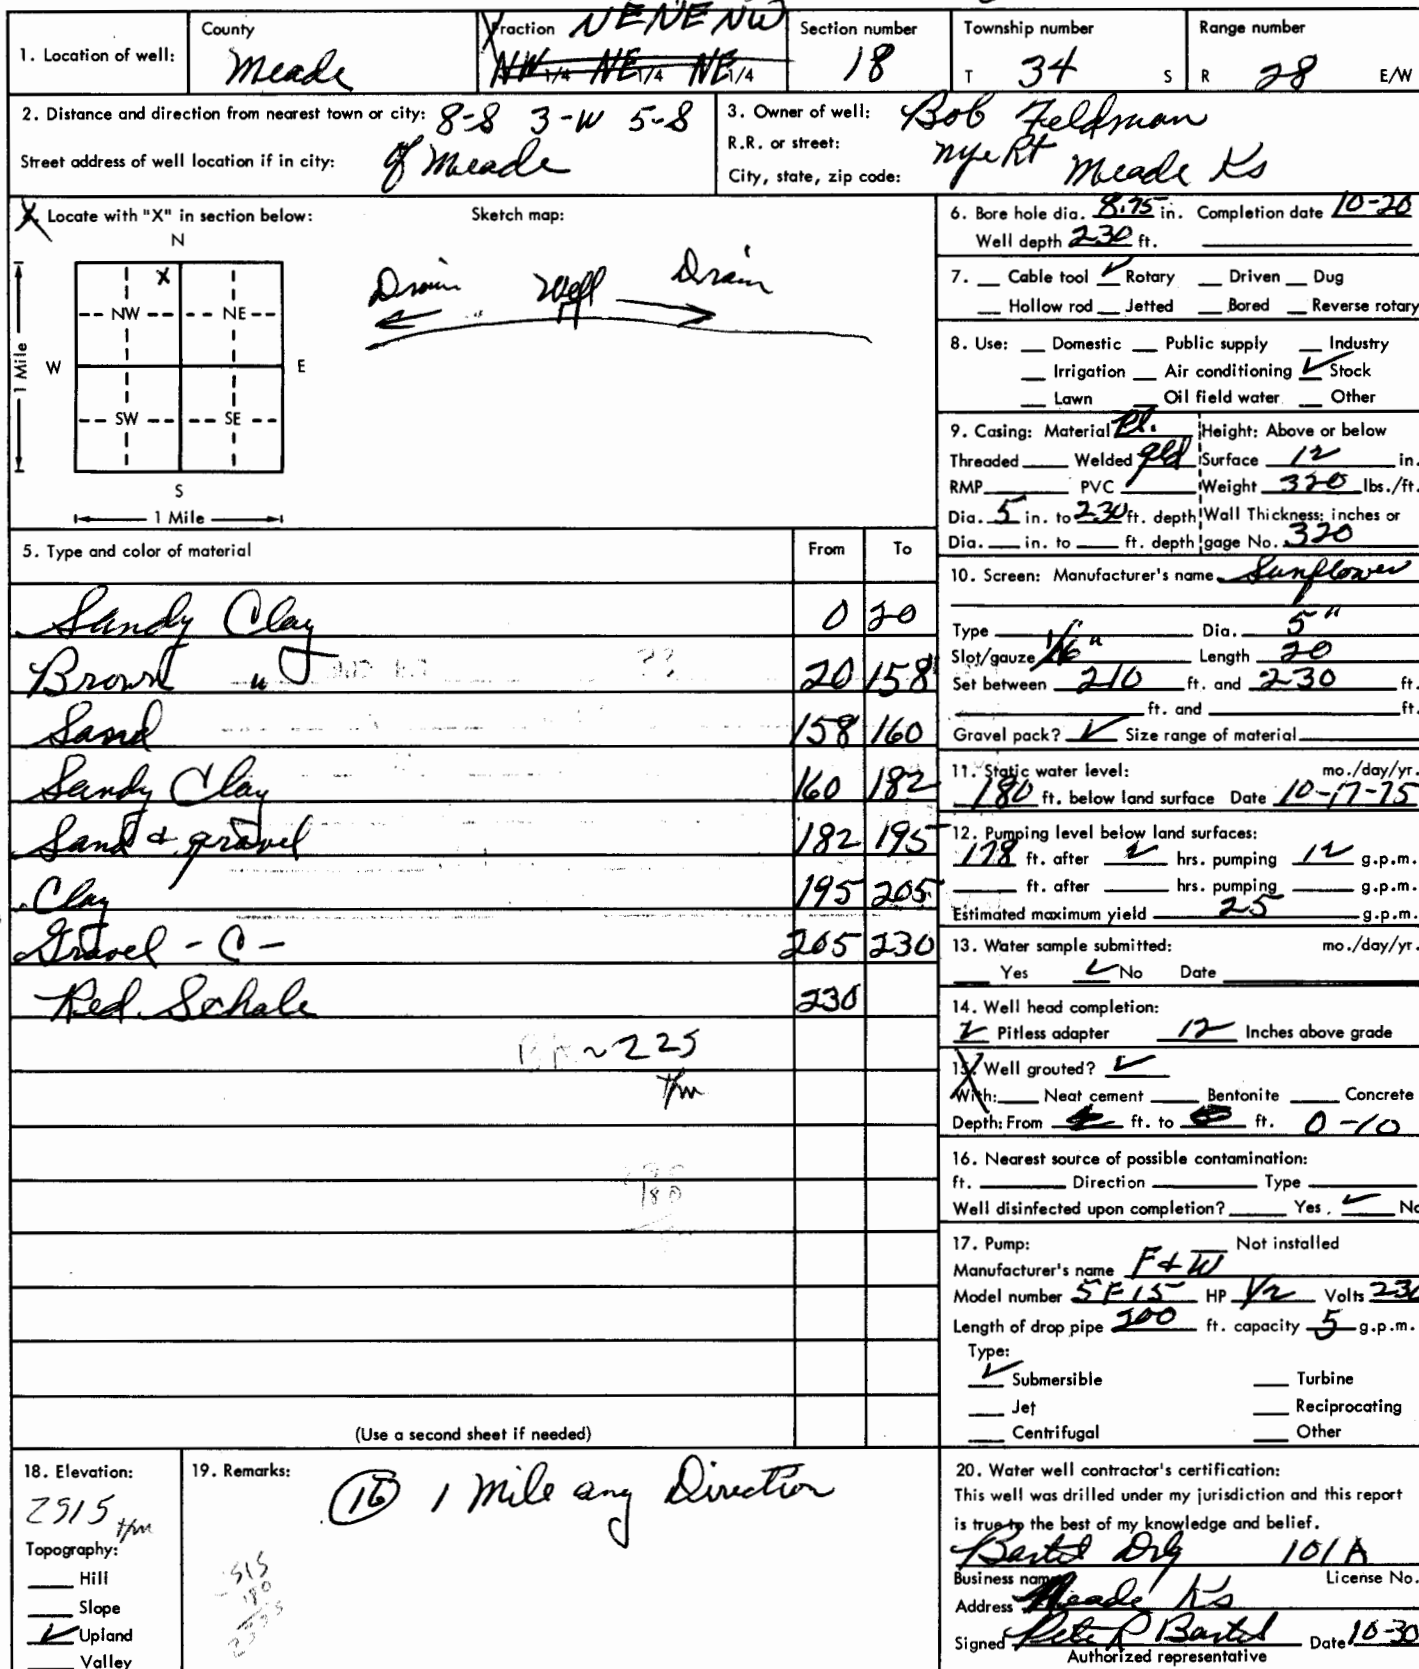 County
Fraction NE NE NW
Section number
Township number
Range number
1. Location of well:
Meade
NW 1/4 NE 1/4 NE 1/4
18
T 34 S
R 28 E/W
2. Distance and direction from nearest town or city: 8-S 3-W 5-S
Street address of well location if in city: of Meade
3. Owner of well: Bob Feldman
R.R. or street: Nye Rt
City, state, zip code: Meade Ks
X Locate with "X" in section below:
Sketch map:
N
X
NW NE
W E
SW SE
S
1 Mile
1 Mile
Drain Well Drain
5. Type and color of material From To
Sandy Clay 0 20
Brown " 20 158
Sand 158 160
Sandy Clay 160 182
Sand & gravel 182 195
Clay 195 205
Gravel - C - 205 230
Red Schale 230
~225
180
(Use a second sheet if needed)
6. Bore hole dia. 8.75 in. Completion date 10-20
Well depth 230 ft.
7. Cable tool ✓ Rotary Driven Dug
Hollow rod Jetted Bored Reverse rotary
8. Use: Domestic Public supply Industry
Irrigation Air conditioning ✓ Stock
Lawn Oil field water Other
9. Casing: Material Pl. Height: Above or below
Threaded Welded gld Surface 12 in.
RMP PVC ✓ Weight 320 lbs./ft.
Dia. 5 in. to 230 ft. depth Wall Thickness: inches or
Dia. in. to ft. depth gage No. 320
10. Screen: Manufacturer's name Sunflower
Type Dia. 5"
Slot/gauze 1/16" Length 20
Set between 210 ft. and 230 ft.
ft. and ft.
Gravel pack? ✓ Size range of material
11. Static water level: mo./day/yr.
180 ft. below land surface Date 10-17-75
12. Pumping level below land surfaces:
178 ft. after 2 hrs. pumping 12 g.p.m.
ft. after hrs. pumping g.p.m.
Estimated maximum yield 25 g.p.m.
13. Water sample submitted: mo./day/yr.
Yes ✓ No Date
14. Well head completion:
✓ Pitless adapter 12 Inches above grade
15. Well grouted? ✓
With: Neat cement Bentonite Concrete
Depth: From ft. to ft. 0-10
16. Nearest source of possible contamination:
ft. Direction Type
Well disinfected upon completion? Yes ✓ No
17. Pump: Not installed
Manufacturer's name F & W
Model number 5F15 HP 1/2 Volts 230
Length of drop pipe 200 ft. capacity 5 g.p.m.
Type:
✓ Submersible Turbine
Jet Reciprocating
Centrifugal Other
18. Elevation:
2515
Topography:
Hill
Slope
✓ Upland
Valley
19. Remarks:
(16) 1 Mile any Direction
20. Water well contractor's certification:
This well was drilled under my jurisdiction and this report
is true to the best of my knowledge and belief.
Bartel Drlg 101A
Business name License No.
Address Meade Ks
Signed Pete R Bartel Date 10-30
Authorized representative